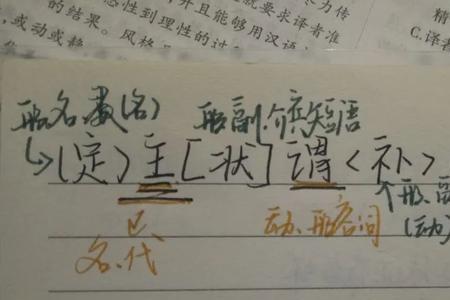 为传
精
感性到理性的过
并且能够用汉语
就要求译者准
的结果。风格
C.译者
,或动或静
形名数(名) 形副.介宾短语
(定)主[状]谓<补>
形、副
(动)
名、代 动、形容词